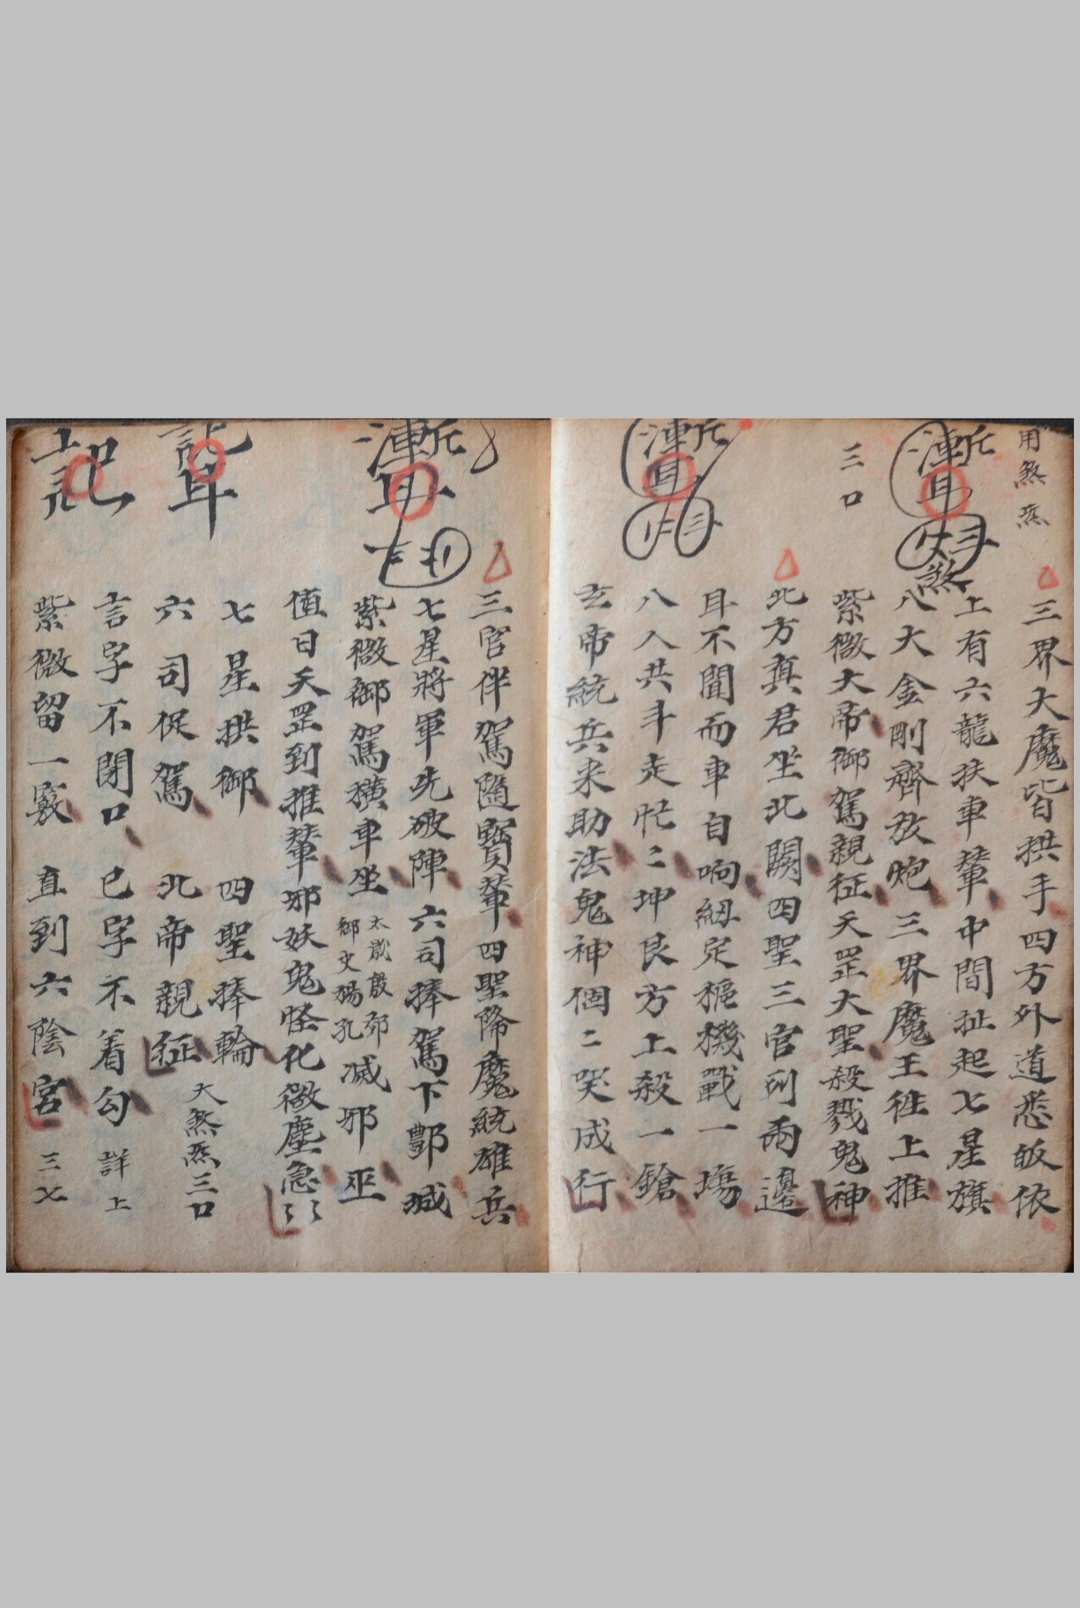 用煞炁
三界大魔皆拱手四方外道悉皈依
上有六龍扶車輦中間扯起七星旗
煞
八大金剛齊放炮三界魔王往上推
三口
紫微大帝御駕親征天罡大聖殺戮鬼神
北方真君坐北闕四聖三官列兩邊
耳不聞而車自响紐定樞機戰一塲
八人共斗走忙〻坤艮方上殺一鎗
玄帝統兵来助法鬼神個〻哭成行
三官伴駕隨寶輦四聖降魔統雄兵
七星將軍先破陣六司捧駕下酆城
紫微御駕橫車坐
太歲殷郊
御史楊孔
滅邪巫
值日天罡到推輦邪妖鬼怪化微塵急〻
七星拱御 四聖捧輪
六司促駕 北帝親征
大煞炁三口
言字不閉口 已字不着勾
詳上
紫微留一竅 直到六陰宮
三七